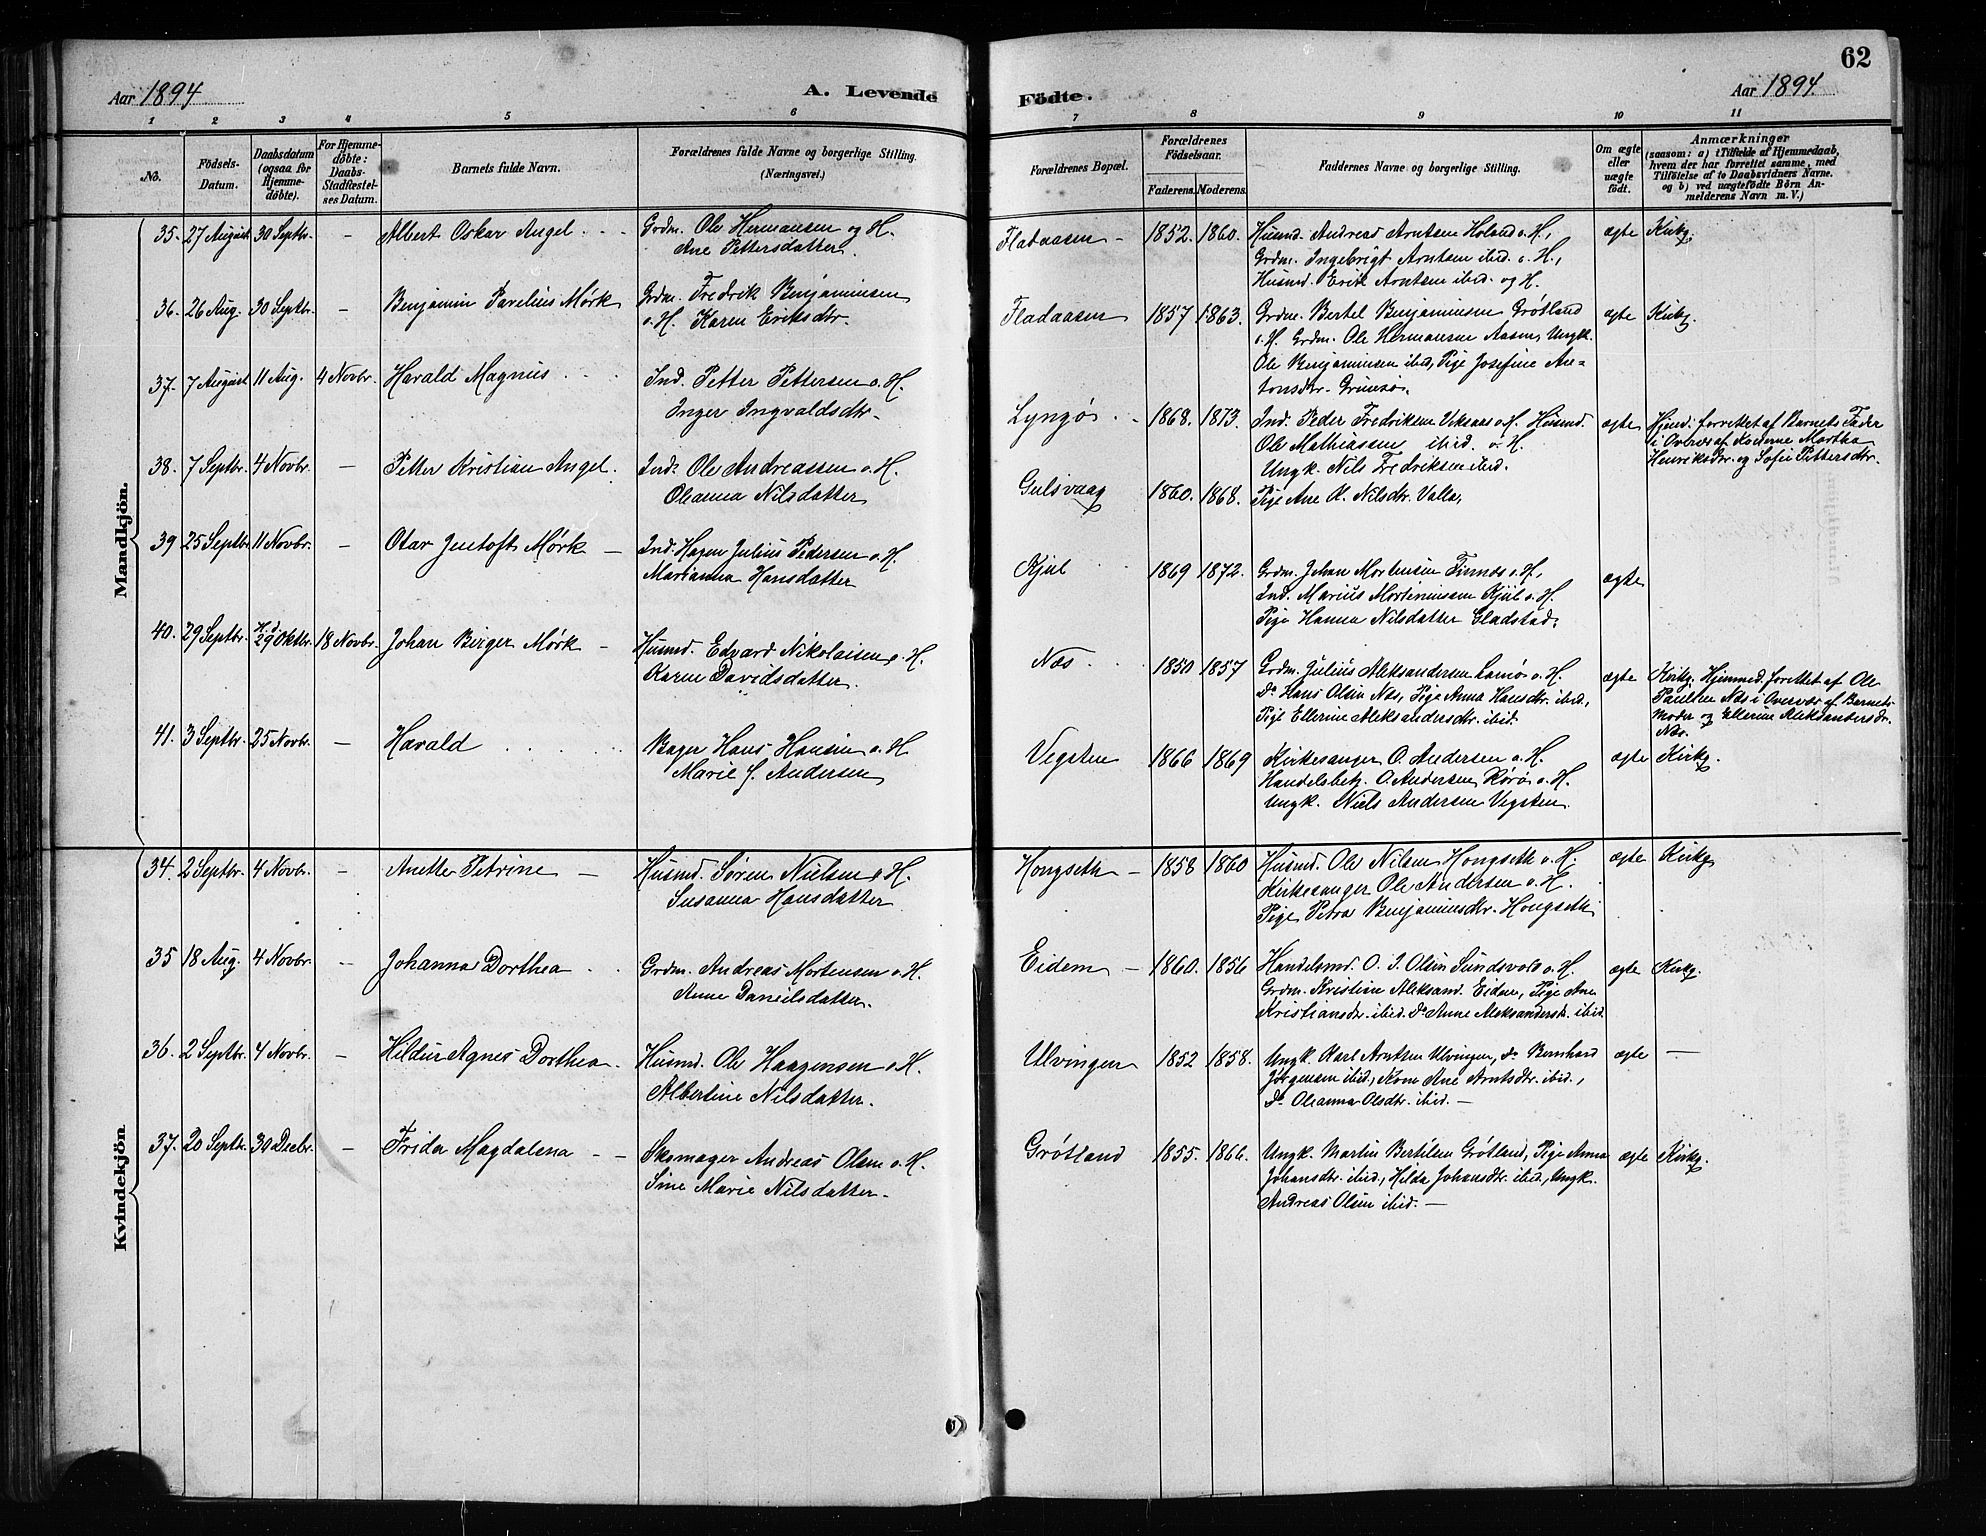 Aar 1894
A. Levende
1 2 3 4 5 6
No.
Födsels-
Datum.
Daabsdatum
(ogsaa for
Hjemme-
döbte).
For Hjemme-
döbte:
Daabs-
Stadfæstel-
ses Datum.
Barnets fulde Navn.
Forældrenes fulde Navne og borgerlige Stilling.
(Næringsvei.)
Mandkjön.
35. 27 August 30 Septbr. - Albert Oskar Angel Grdm. Ole Hermansen og H.
Ane Pettersdatter.
36. 26 Aug. 30 Septbr. - Benjamin Pavelius Mørk Grdm. Fredrik Benjaminsen
o. H. Karen Eriksdtr.
37. 7 August 11 Aug. 4 Novbr. Harald Magnus Ind. Petter Pettersen o. H.
Inger Ingvaldsdtr.
38. 7 Septbr. 4 Novbr. - Petter Kristian Angel. Inds Ole Andreassen o. H.
Oleanna Nilsdatter
39 25 Septbr. 11 Novbr. - Otar Justoft Mørk - Ind. Hagen Julius Pedersen o. H.
Marianna Hansdatter
40. 29 Septbr. H. d. 29 Oktbr. 18 Novbr. Johan Birger Mørk - Husmd. Edvard Nikolaisen o. H.
Karen Davidsdatter.
41. 3 Septbr. 25 Novbr. - Harald Bager Hans Hansen o. H
Marie J. Andersen
Kvindekjön
34. 2 Septbr. 4 Novbr. - Anette Petrine - Husmd. Søren Nielsen o H.
Susanna Hansdatter
35 18 Aug. 4 Novbr. - Johanna Dorthea Grdm. Andreas Mortensen o. H.
Anne Danielsdatter.
36. 2 Septbr. 4 Novbr. - Hildur Agnes Dorthea. Husmd. Ole Haagensen o H.
Albertine Nilsdatter.
37. 20 Septbr. 30 Decbr. - Frida Magdalena - - Skomager Andreas Olsen o. H.
Sine Marie Nilsdatter.
62
Födte.
Aar 1894.
7 8 9 10 11
Forældrenes Bopæl.
Forældrenes
Födselsaar.
Faderens. Moderens.
Faddernes Navne og borgerlige Stilling.
Om ægte
eller
uægte
födt.
Anmærkninger
(saasom: a) i Tilfælde af Hjemmedaab,
hvem der har forrettet samme, med
Tilföielse af to Daabsvidners Navne.
og b) ved uægtefödte Börn An-
melderens Navn m. V.)
Fladaasen - 1852. 1860. Husmd. Andreas Arntsen Høland o. H., ægte Kirkg.
Grdm. Ingebrigt Arntsen ibid. o. H.,
Husmd. Erik Arntsen ibid. og H.
Fladaasen 1857 1863. Grdm. Bertel Benjaminsen Grötland ægte Kirkg.
o. H. Grdm. Ole Hermansen Aasen, Ungk.
Ole Benjaminsen ibid, Pige Josefine An-
tonsdtr.
Lyngøs - 1868. 1873. Ind. Peder Fredriksen Viksaas o. H. Husmd. ægte Hjmd. forrettet af Barnets Fader
Ole Mathiassen ibid. o. H i Overvær af Konerne Martha
Ungk. Nils Fredriksen ibid. Henriksdtr. og Sofie Pettersdtr.
Gulsvaag 1860. 1868. Pige Ane O. Nilsdtr. Valla,
Kjul 1869 1872. Grdm. Johan Mortensen Finnes o. H., ægte
Ind. Marius Mortensen Kjul o. H.
Pige Hanna Nilsdatter Gladstad.
Næs 1850 1857 Grdm. Julius Aleksandersen o. H. ægte Kirkg. Hjemmed. forettet af Ole
Do Hans Olsen Næs, Pige Anna Hansdtr. ibid., Paulsen Næs i Overvær af Barnets
Pige Ellerine Aleksandersdtr. ibid. Moder og Ellerine Aleksandersdr.
Næs.
Vegsten 1866 1869 Kirkesanger O. Andersen o. H. ægte Kirkg.
Handelsbetj. O. Andersen Rørø o. H.
Ungk. Niels Andersen Vegsten.
Hongseth - 1858 1860 Husmd. Ole Nilsen Hongseth o. H. ægte Kirkg
Kirkesanger Ole Andersen o. H.
Pige Petra Benjaminsdtr. Hongseth
Eidem - 1860. 1856 Handelsmd. O. J. Olsen Sundsvold o. H. ægte Kirkg.
Grdm. Kristian Aleksand. Eidem, Pige Ane
Kristiansdtr. ibid. Do Anne Aleksandersdr. ibid.
Ulvingen 1852 1858. Ungk. Karl Arntsen Ulvingen, do Bernhard ægte -
Jørgensen ibid., Kone Ane Arntsdtr. ibid.,
do Oleanna Olsdtr. ibid. -
Grötland 1855. 1866. Ungk. Martin Bertilsen Grötland, Pige Anna ægte Kirkg.
Johansdtr. ibid., Hilda Johansdtr. ibid., Ungk.
Andreas Olsen ibid. -